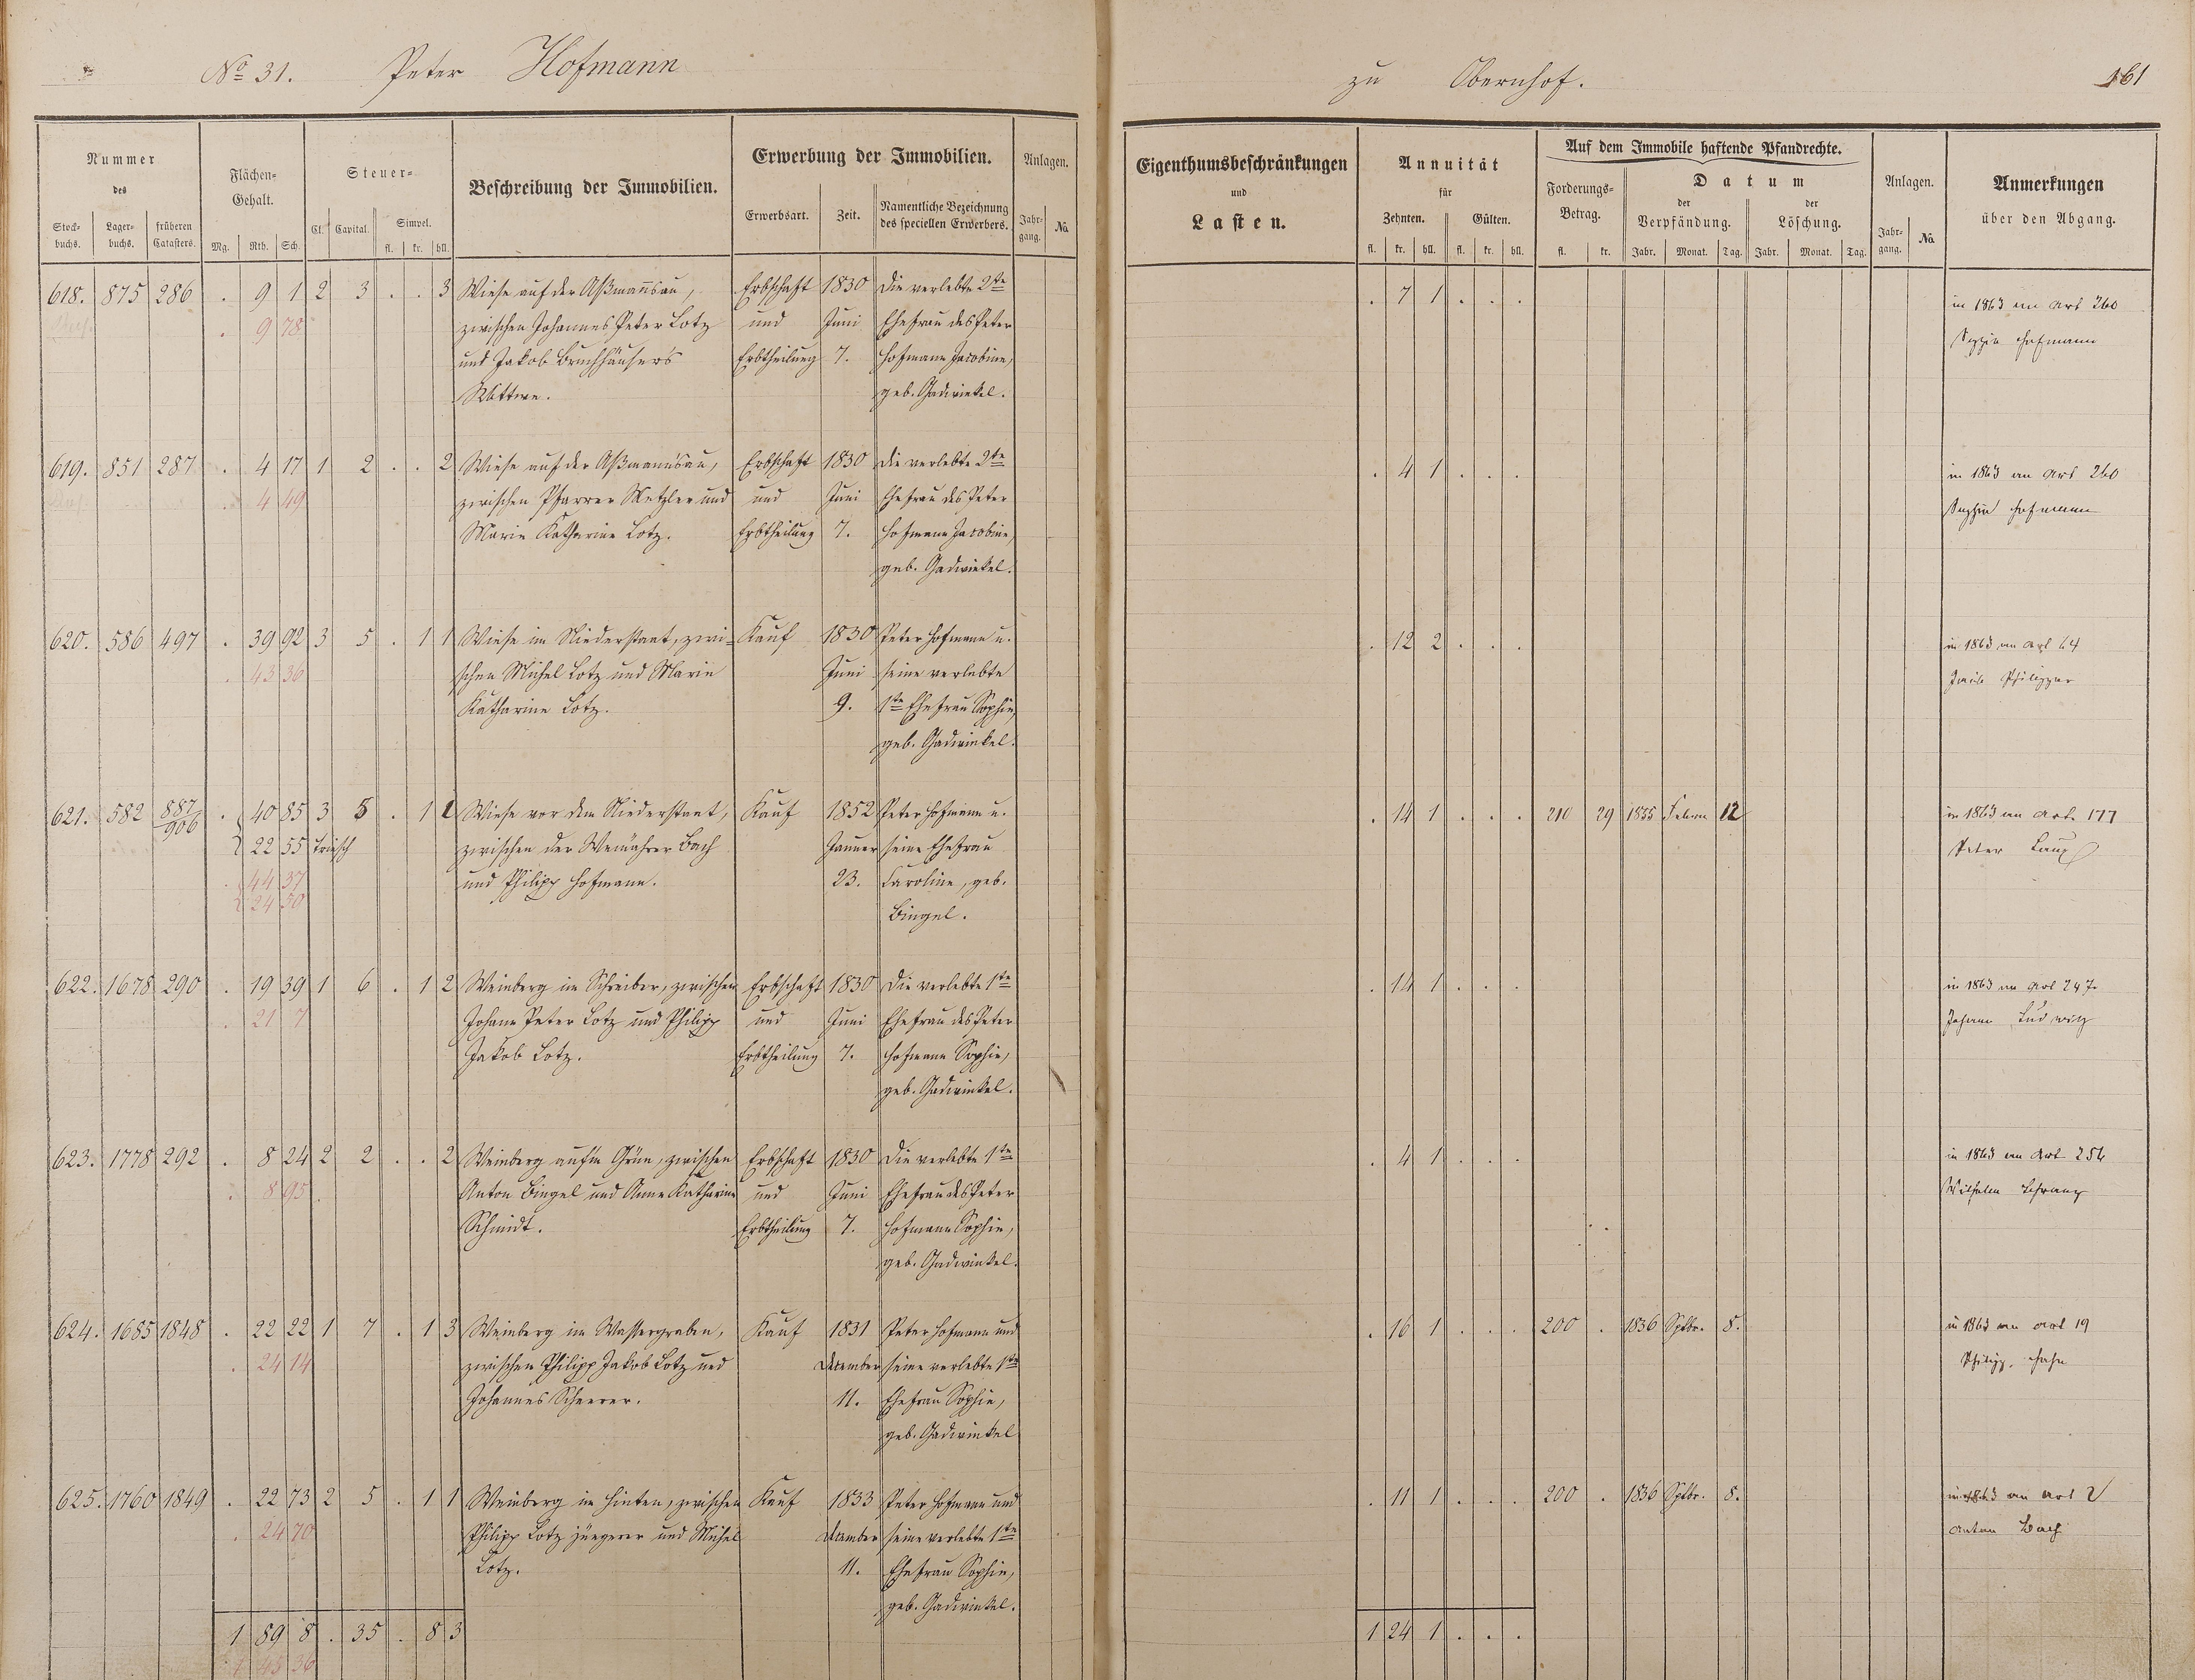 No 31. Peter Hofmann
zu Obernhof. 161
Nummer des
Stock-buchs. Lager-buchs. früheren Catasters.
Flächen-Gehalt.
Mg. Rth. Sch.
Steuer-
Cl. Capital. Simpel.
fl. kr. hll.
Beschreibung der Immobilien.
Erwerbung der Immobilien.
Erwerbsart. Zeit. Namentliche Bezeichnung des speciellen Erwerbers.
Anlagen.
Jahr-gang. No.
Eigenthumsbeschränkungen
und
Lasten.
Annuität
für
Zehnten. Gülten.
fl. kr. hll. fl. kr. hll.
Auf dem Immobile haftende Pfandrechte.
Forderungs-Betrag.
fl. kr.
Datum
der Verpfändung. der Löschung.
Jahr. Monat. Tag. Jahr. Monat. Tag.
Anlagen.
Jahr-gang. No.
Anmerkungen
über den Abgang.
618. 875 286 . 9 1 2 3 . . 3 Wiese auf der Aßmannsau, Erbschaft 1830 Die verlebte 2te . 7 1 . . . in 1863 an Art 260
. 9 78 zwischen Johannes Peter Lotz und Juni Ehefrau des Peter Sophie Hofmann
und Jakob Bruchhäuser's Erbtheilung 7. Hofmann Jacobine,
Wittwe. geb. Gadwinkel.
619. 851 287 . 4 17 1 2 . . 2 Wiese auf der Aßmannsau, Erbschaft 1830 Die verlebte 2te . 4 1 . . . in 1863 an Art 260
. 4 49 zwischen Pfarrer Metzler und und Juni Ehefrau des Peter Sophie Hofmann
Marie Katharine Lotz. Erbtheilung 7. Hofmann Jacobine,
geb. Gadwinkel.
620. 586 497 . 39 92 3 5 . 1 1 Wiese im Niederstaat, zwi- Kauf 1830 Peter Hofmann u. . 12 2 . . . in 1863 an Art 64
. 43 36 schen Michel Lotz und Marie Juni seine verlebte
Katharine Lotz. 9. 1te Ehefrau Sophie,
geb. Gadwinkel.
621. 582 887/906 . 40 85 3 5 . 1 1 Wiese vor dem Niederstaat, Kauf 1852 Peter Hofmann u. . 14 1 . . . 210 29 1855 12 in 1863 an Art. 177
22 55 Triesch zwischen der Weinährer Bach Januar seine Ehefrau Peter
44 37 und Philipp Hofmann. 23. Caroline, geb.
24 50 Bingel.
622. 1678 290 . 19 39 1 6 . 1 2 Weinberg im Schreiber, zwischen Erbschaft 1830 Die verlebte 1te . 14 1 . . . in 1863 an Art 247
. 21 7 Johann Peter Lotz und Philipp und Juni Ehefrau des Peter Johann Ludwig
Jakob Lotz. Erbtheilung 7. Hofmann Sophie,
geb. Gadwinkel.
623. 1778 292 . 8 24 2 2 . . 2 Weinberg auf'm Grün, zwischen Erbschaft 1830 Die verlebte 1te . 4 1 . . . in 1863 an Art 256
. 8 95 Anton Bingel und Anne Katharine und Juni Ehefrau des Peter Wilhelm
Schmidt. Erbtheilung 7. Hofmann Sophie,
geb. Gadwinkel.
624. 1685 1848 . 22 22 1 7 . 1 3 Weinberg im Wassergraben, Kauf 1831 Peter Hofmann und . 16 1 . . . 200 . 1836 Sptbr. 8. in 1863 an Art 19
. 24 14 zwischen Philipp Jakob Lotz und December seine verlebte 1te Philipp. Hahn
Johannes Scheerer. 11. Ehefrau Sophie,
geb. Gadwinkel
625. 1760 1849 . 22 73 2 5 . 1 1 Weinberg im hinten, zwischen Kauf 1833 Peter Hofmann und . 11 1 . . . 200 . 1836 Sptbr. 8. in 1863 an Art 2
. 24 70 Philipp Lotz jüngerer und Michel December seine verlebte 1te Anton Bach
Lotz. 11. Ehefrau Sophie,
geb. Gadwinkel.
1 89 8 . 35 . 8 3 1 24 1 . . .
1 45 36